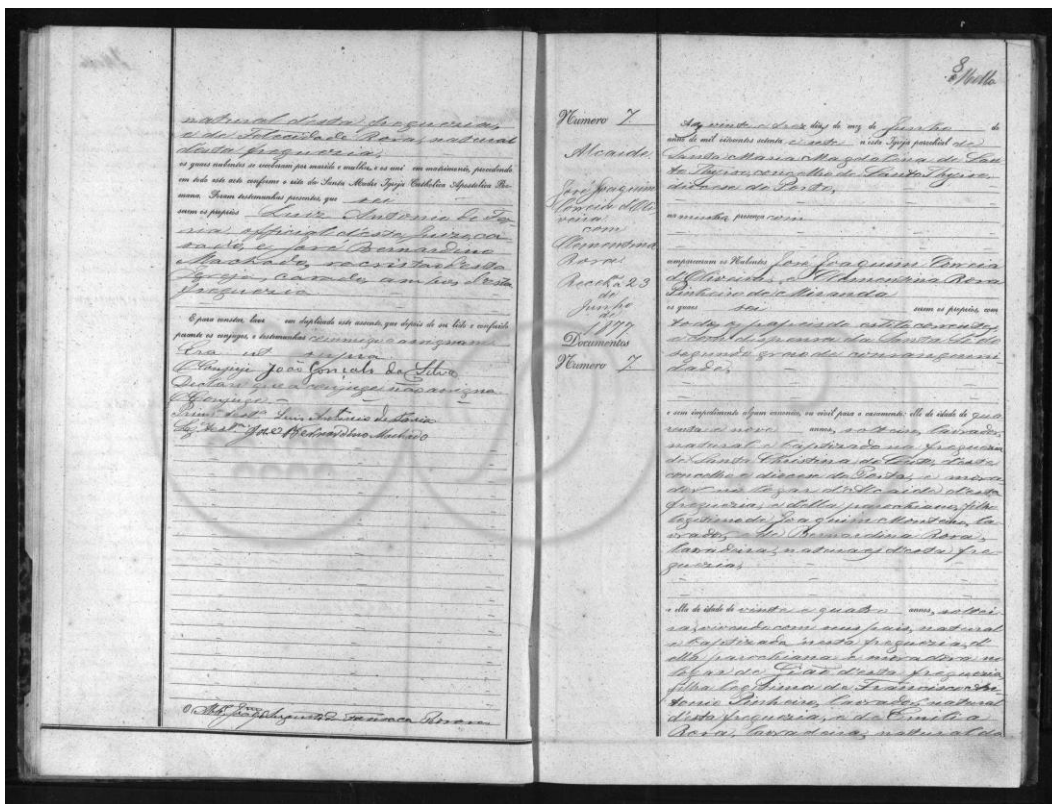 natural d'esta freguezia,
e de Felicidade Rosa, natural
desta freguezia,
os quaes nubentes se receberam por marido e mulher, e os uni em matrimonio, procedendo
em todo este acto conforme o rito da Santa Madre Igreja Catholica Apostolica Ro-
mana. Foram testemunhas presentes, que sei
serem os proprios Luiz Antonio de Fa-
ria, official d'este Juizo, ca-
sado, e José Bernardino
Machado, sacristão d'esta
Igreja, casado, ambos d'esta
freguezia
E para constar, lavrei em duplicado este assento, que depois de ser lido e conferido
perante os conjuges, e testemunhas commigo assignam
Era ut supra
O conjuge João Gonçalves da Silva
Declaro que a conjuge não assigna
O Conjuge
Prim. test.ª Luis Antonio de Faria
Seg. test.ª José Bernardino Machado
O Abb.
8
Mello
Numero 7
Alcaide,
José Joaquim
Correia d'Oli-
veira
com
Clementina
Rosa
Receb. a 23
de
Junho
de
Documentos
Numero 7
Aos vinte e trez dias do mez de Junho do
anno de mil oitocentos oitenta e sete n'esta Igreja parochial de
Santa Maria Magdalena de San-
to Thyrso, concelho de Santo Thyrso,
diocese do Porto,
na minha presença com
compareceram os Nubentes José Joaquim Correia
d'Oliveira, e Clementina Rosa
Pinheiro de Miranda
os quaes sei serem os proprios, com
todos os papeis do estilo correntes,
e com dispensa da Santa Sé do
segundo grao de consanguini-
dade,
e sem impedimento algum canonico, ou civil para o casamento: elle de idade de qua-
renta e nove annos, solteiro, lavrador,
natural e baptizado na freguezia
de Santa Christina do Couto, d'este
concelho e diocese do Porto, e mora-
dor no logar d'Alcaide d'esta
freguezia, e della parochiano, filho
legitimo de Joaquim Monteiro, la-
vrador, e de Bernardina Rosa,
lavradeira, naturaes d'esta fre-
guezia,
e ella de idade de vinte e quatro annos, soltei-
ra, vivendo com seus pais, natural
e baptizada nesta freguezia, d'
ella parochiana e moradora no
logar de d'esta freguezia,
filha legitima de Francisco An-
tonio Pinheiro, lavrador, natural
d'esta freguezia, e de Emilia
Rosa, lavradeira, natural da